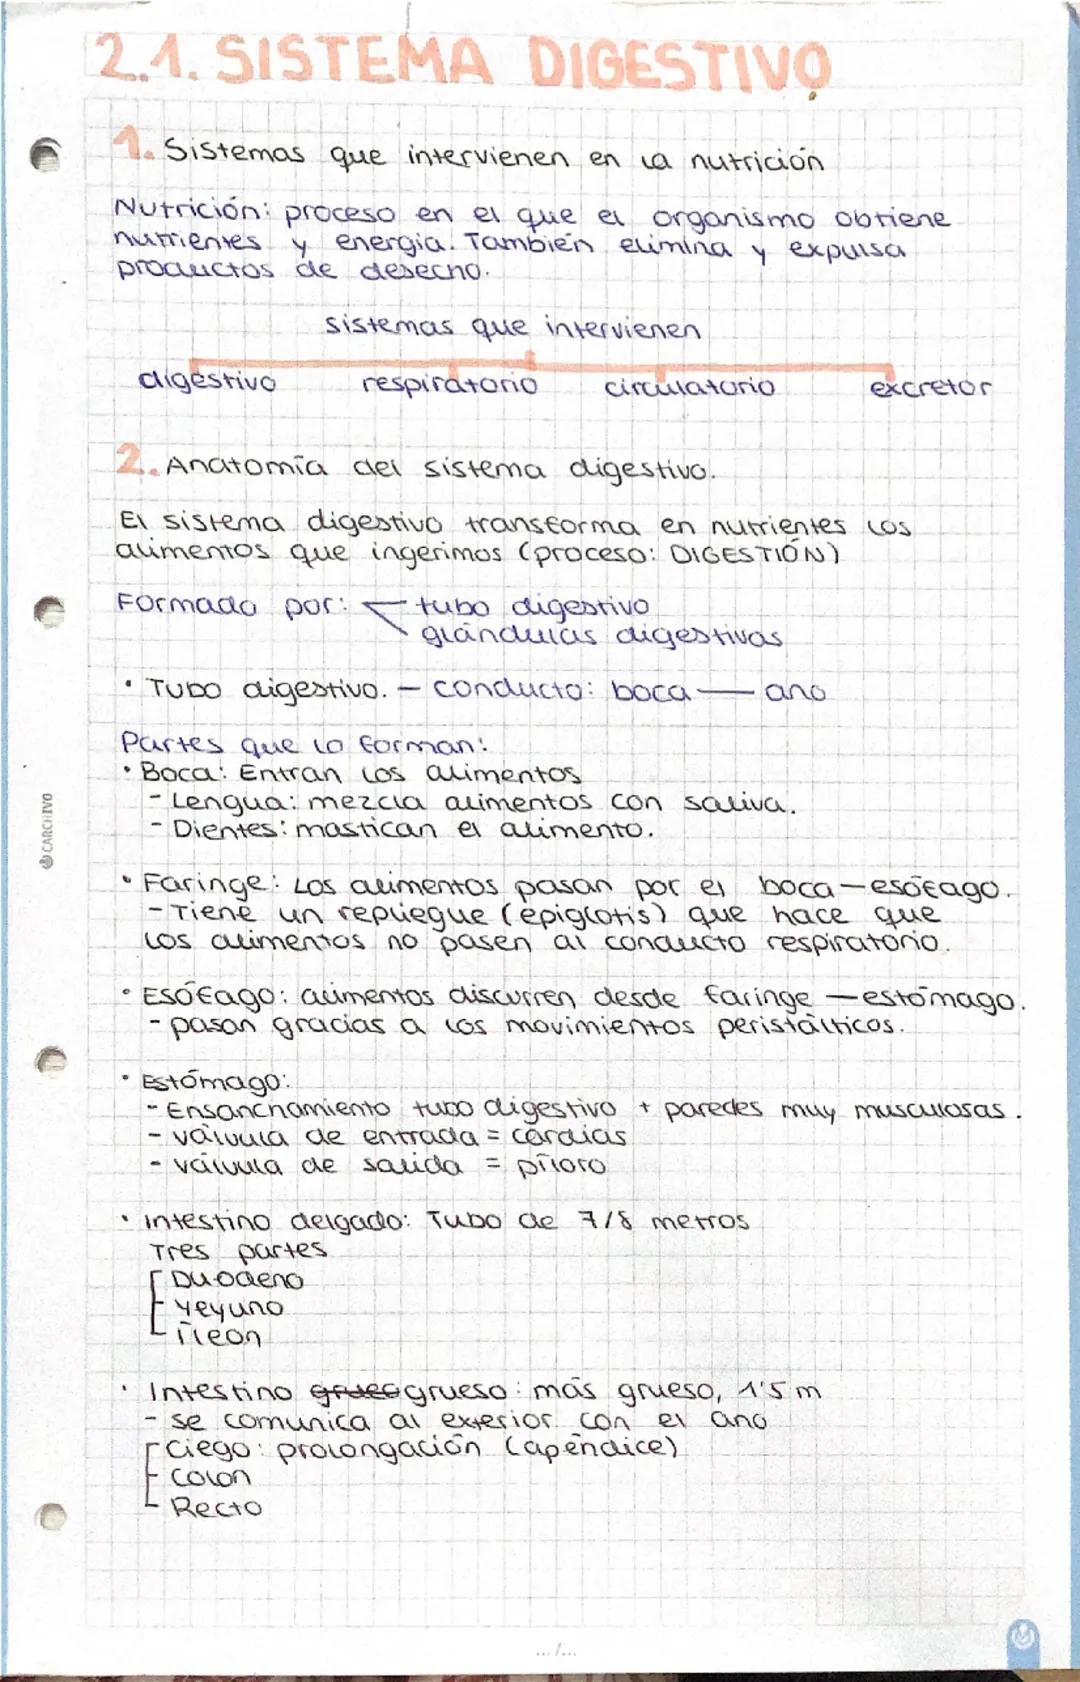 2.1. SISTEMA DIGESTIVO
1. Sistemas que intervienen en la nutrición
Nutrición: proceso en el que el organismo obtiene
nutrientes y energia. También elimina y expulsa
productos de desecho.
sistemas que intervienen
digestivo respiratorio circulatorio excretor
2. Anatomía del sistema digestivo.
El sistema digestivo transforma en nutrientes los
alimentos que ingerimos (proceso: DIGESTIÓN)
Formado por: tubo digestivo
glándulas digestivas
• Tubo digestivo. – conducto: boca — ano
Partes que lo forman:
• Boca: Entran los alimentos
- Lengua: mezcla alimentos con saliva.
- Dientes: mastican el alimento.
• Faringe: Los alimentos pasan por el boca – esófago.
- Tiene un repliegue (epiglotis) que hace que
los alimentos no pasen al conducto respiratorio.
• Esófago: alimentos discurren desde faringe – estómago.
- pasan gracias a los movimientos peristálticos.
• Estómago:
- Ensanchamiento tubo digestivo + paredes muy musculosas.
- válvula de entrada = cardias
- válvula de salida = píloro
• Intestino delgado: Tubo de 7/8 metros
Tres partes
Duodeno
Yeyuno
Íleon
• Intestino grueso: más grueso, 1'5 m
- se comunica al exterior con el ano
Ciego: prolongación (apéndice)
Colon
Recto
CARCHIVO
.../...